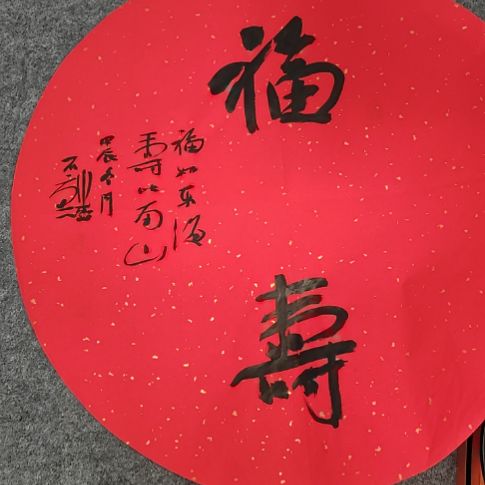 福壽
福如东海
壽比南山
甲辰冬月